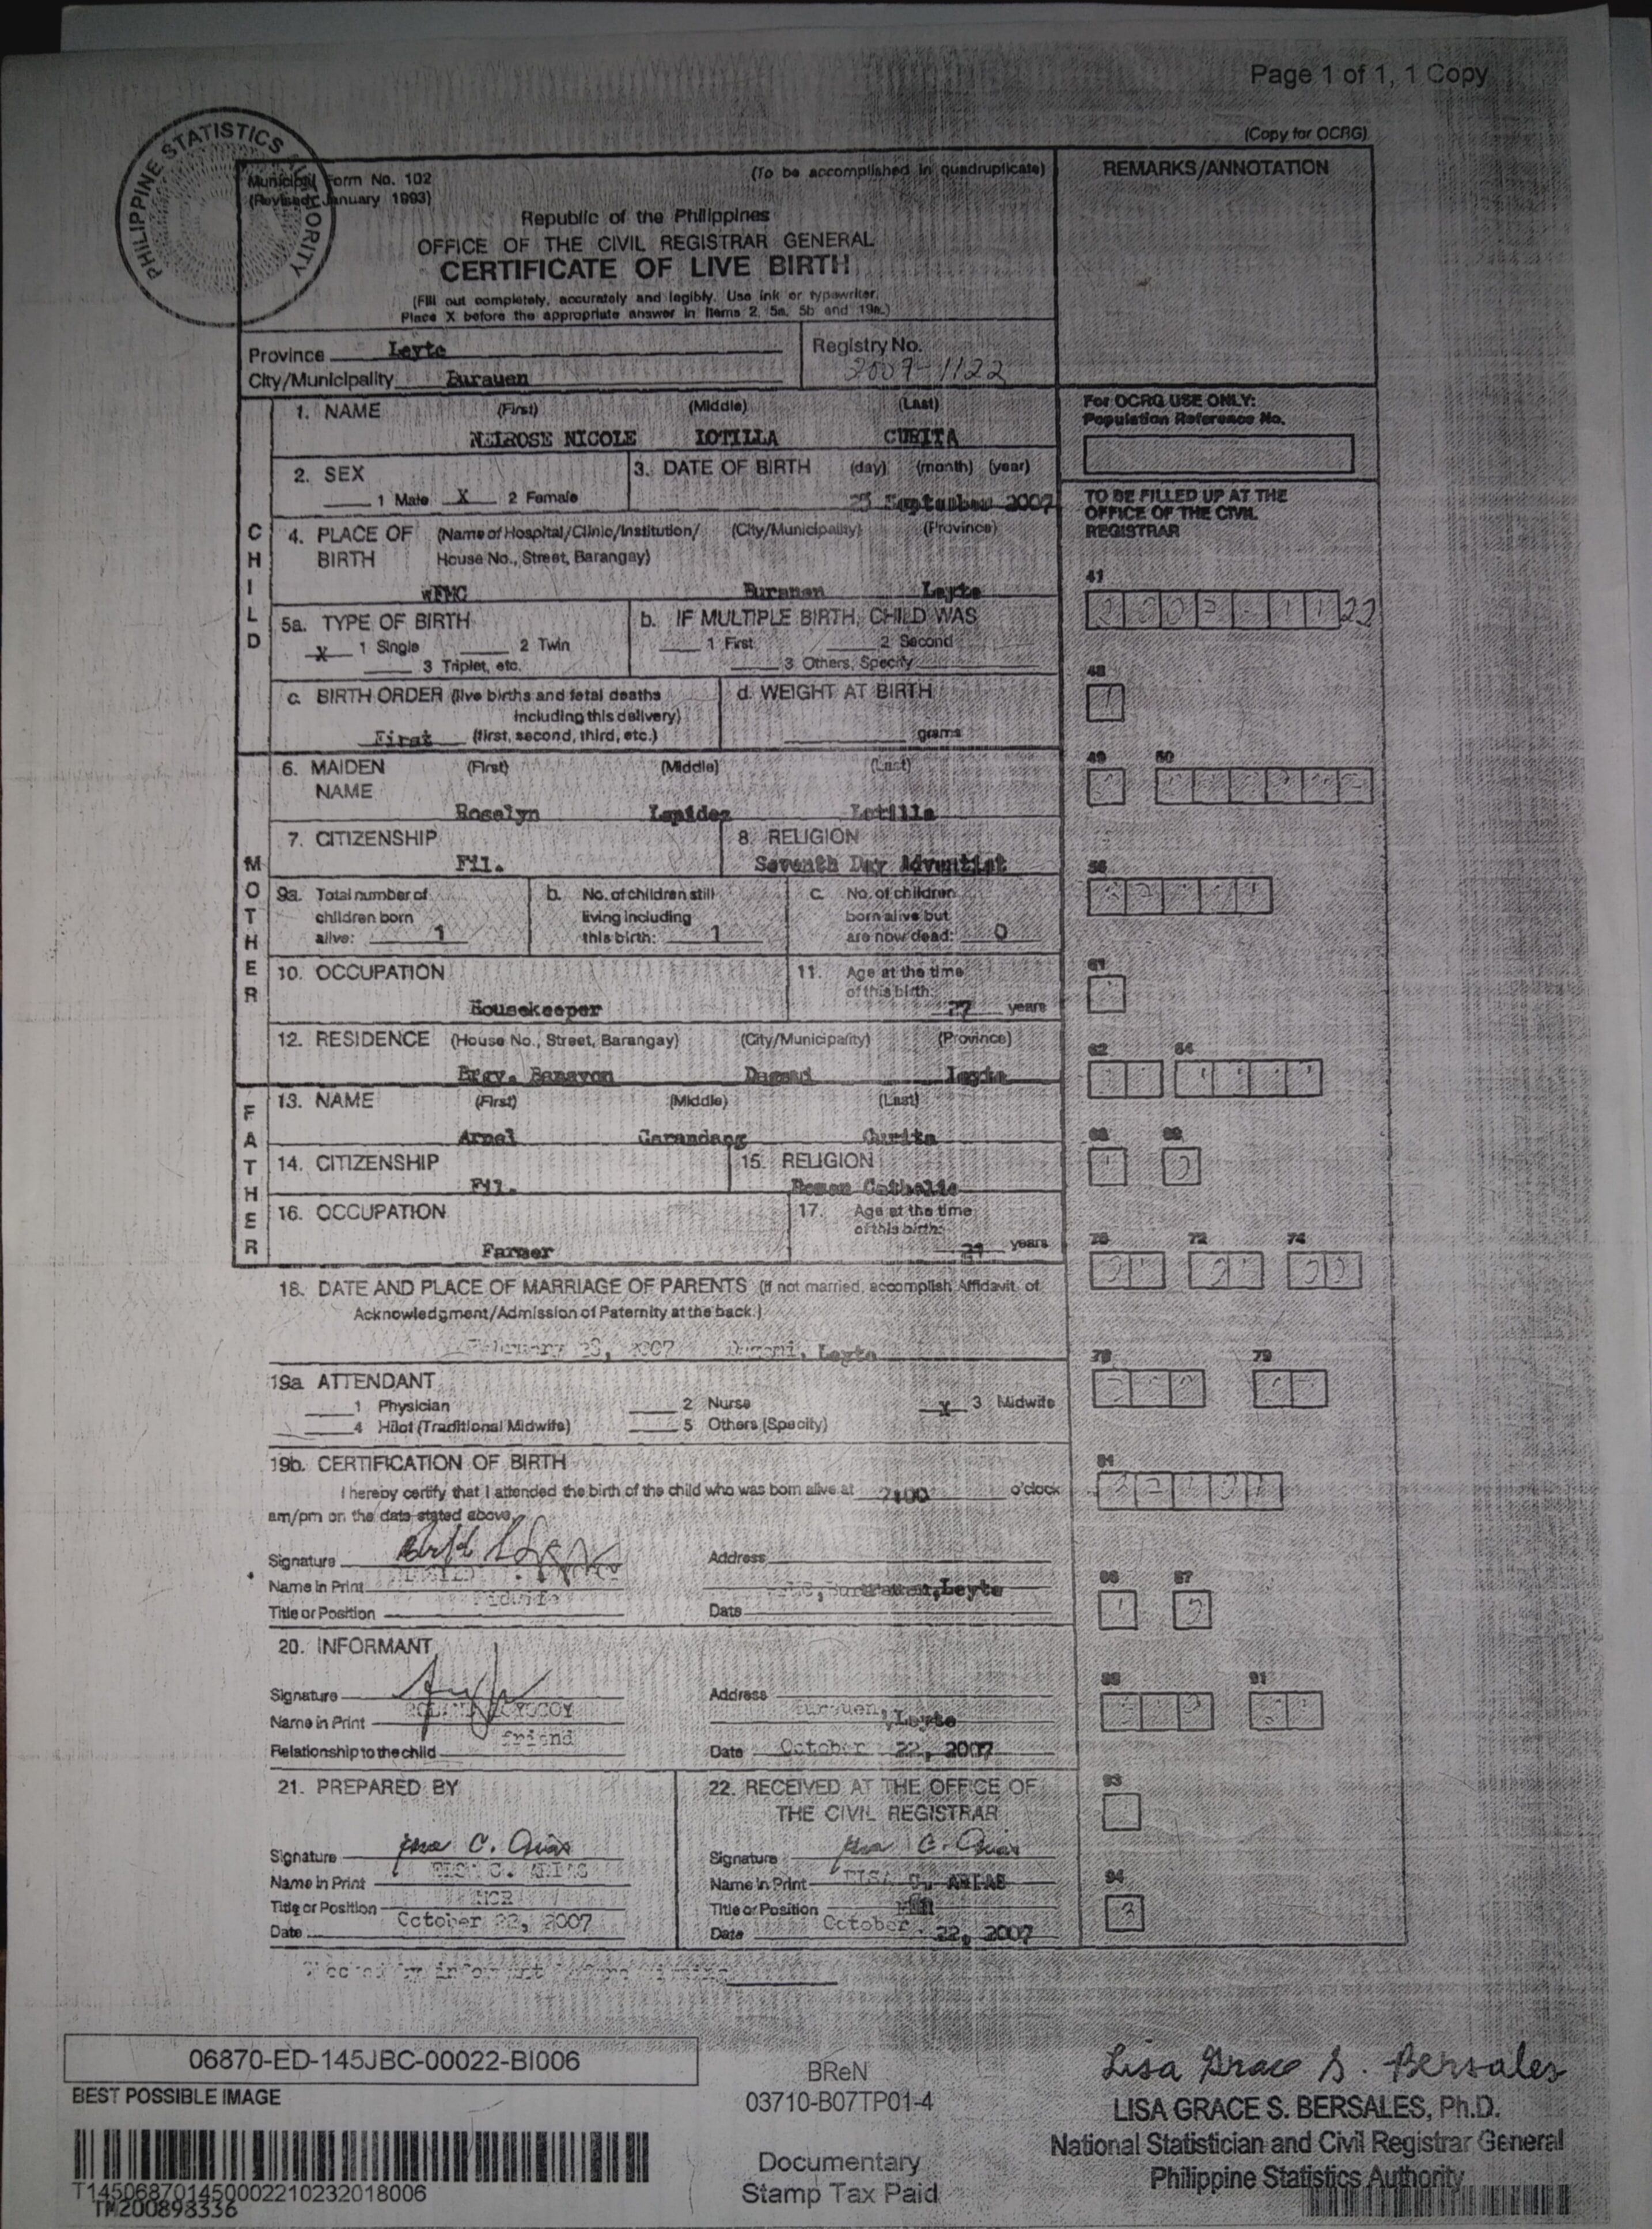 Page 1 of 1, 1 Copy
(Copy for OCRG)
PHILIPPINE STATISTICS AUTHORITY
Municipal Form No. 102
(Revised January 1993)
(To be accomplished in quadruplicate)
REMARKS/ANNOTATION
Republic of the Philippines
OFFICE OF THE CIVIL REGISTRAR GENERAL
CERTIFICATE OF LIVE BIRTH
(Fill out completely, accurately and legibly. Use ink or typewriter.
Place X before the appropriate answer in items 2, 5a, 5b and 19a.)
Province Leyte
Registry No.
2007-1122
City/Municipality Burauen
For OCRG USE ONLY:
Population Reference No.
CHILD
1. NAME (First) (Middle) (Last)
NEIROSE NICOLE LOTILLA CURITA
2. SEX
1 Male X 2 Female
3. DATE OF BIRTH (day) (month) (year)
25 September 2007
TO BE FILLED UP AT THE
OFFICE OF THE CIVIL
REGISTRAR
4. PLACE OF BIRTH (Name of Hospital/Clinic/Institution/ (City/Municipality) (Province)
House No., Street, Barangay)
Burauen Leyte
41
5a. TYPE OF BIRTH
X 1 Single 2 Twin
3 Triplet, etc.
b. IF MULTIPLE BIRTH, CHILD WAS
1 First 2 Second
3 Others, Specify
48
c. BIRTH ORDER (live births and fetal deaths
including this delivery)
First (first, second, third, etc.)
d. WEIGHT AT BIRTH
grams
MOTHER
6. MAIDEN NAME (First) (Middle) (Last)
Rosalyn Lapidez Lotilla
49 50
7. CITIZENSHIP
Fil.
8. RELIGION
Seventh Day Adventist
56
9a. Total number of
children born
alive: 1
b. No. of children still
living including
this birth: 1
c. No. of children
born alive but
are now dead: 0
10. OCCUPATION
Housekeeper
11. Age at the time
of this birth:
years
61
12. RESIDENCE (House No., Street, Barangay) (City/Municipality) (Province)
Brgy. Dagami Leyte
62 64
FATHER
13. NAME (First) (Middle) (Last)
Arnel Garandang Curita
68 69
14. CITIZENSHIP
Fil.
15. RELIGION
Roman Catholic
16. OCCUPATION
Farmer
17. Age at the time
of this birth:
years
70 72 74
18. DATE AND PLACE OF MARRIAGE OF PARENTS (If not married, accomplish Affidavit of
Acknowledgment/Admission of Paternity at the back.)
February 2007 Dagami, Leyte
19a ATTENDANT
1 Physician 2 Nurse X 3 Midwife
4 Hilot (Traditional Midwife) 5 Others (Specify)
79
19b. CERTIFICATION OF BIRTH
I hereby certify that I attended the birth of the child who was born alive at o'clock
am/pm on the date stated above.
Signature Address
Name in Print Leyte
Midwife
Title or Position Date
86 87
20. INFORMANT
Signature Address
Name in Print Burauen, Leyte
friend
Relationship to the child Date October 22, 2007
91
21. PREPARED BY
Signature
Name in Print C. ARIAS
Title or Position MCR
Date October 22, 2007
22. RECEIVED AT THE OFFICE OF
THE CIVIL REGISTRAR
Signature
Name in Print C. ARIAS
Title or Position
Date October 22, 2007
93
94
06870-ED-145JBC-00022-BI006
BEST POSSIBLE IMAGE
T145068701450002210232018006
TM200898336
BReN
03710-B07TP01-4
Documentary
Stamp Tax Paid
Lisa Grace S. Bersales
LISA GRACE S. BERSALES, Ph.D.
National Statistician and Civil Registrar General
Philippine Statistics Authority